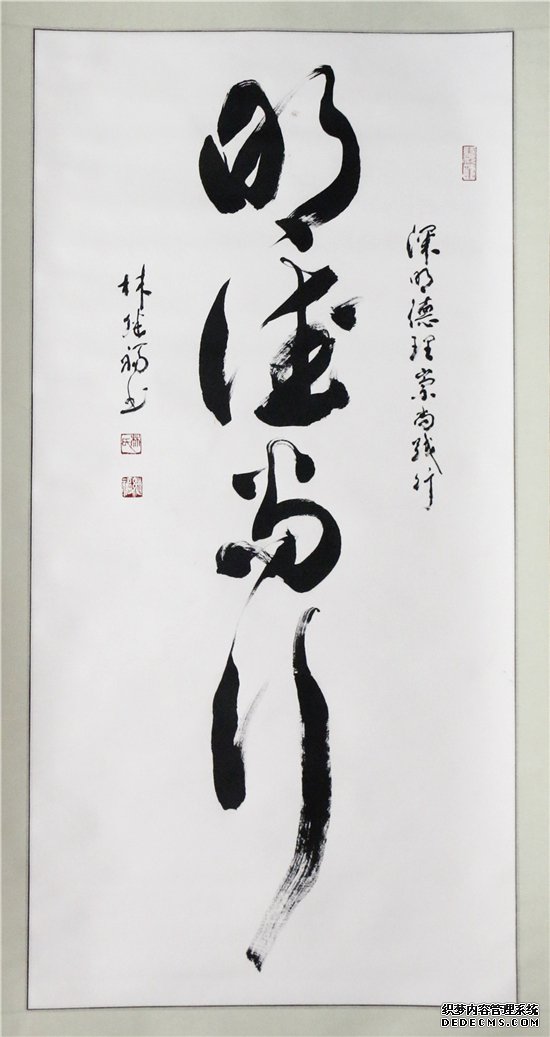 深明德理崇尚践行
明德尚行
林继福书
织梦内容管理系统
DEDECMS.COM